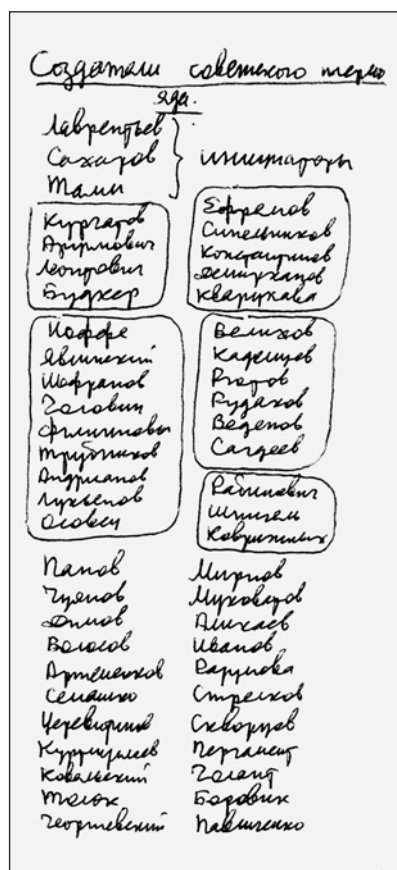 Создатели советского термо
яда.
Лаврентьев
Сахаров
Тамм
инициаторы
Курчатов
Арцимович
Леонтович
Будкер
Ефремов
Синельников
Константинов
Демирханов
Кварцхава
Иоффе
Явлинский
Шафранов
Головин
Филипповы
Трубников
Андрианов
Лукьянов
Осовец
Велихов
Кадомцев
Рютов
Рудаков
Веденов
Сагдеев
Рабинович
Шпигель
Коврижных
Панов
Чуянов
Димов
Волосов
Артеменков
Семашко
Церевитинов
Курткмуллаев
Ковальский
Толок
Георгиевский
Мирнов
Муховатов
Аликаев
Иванов
Разумова
Стрелков
Скворцов
Пергамент
Галант
Боровик
Павличенко